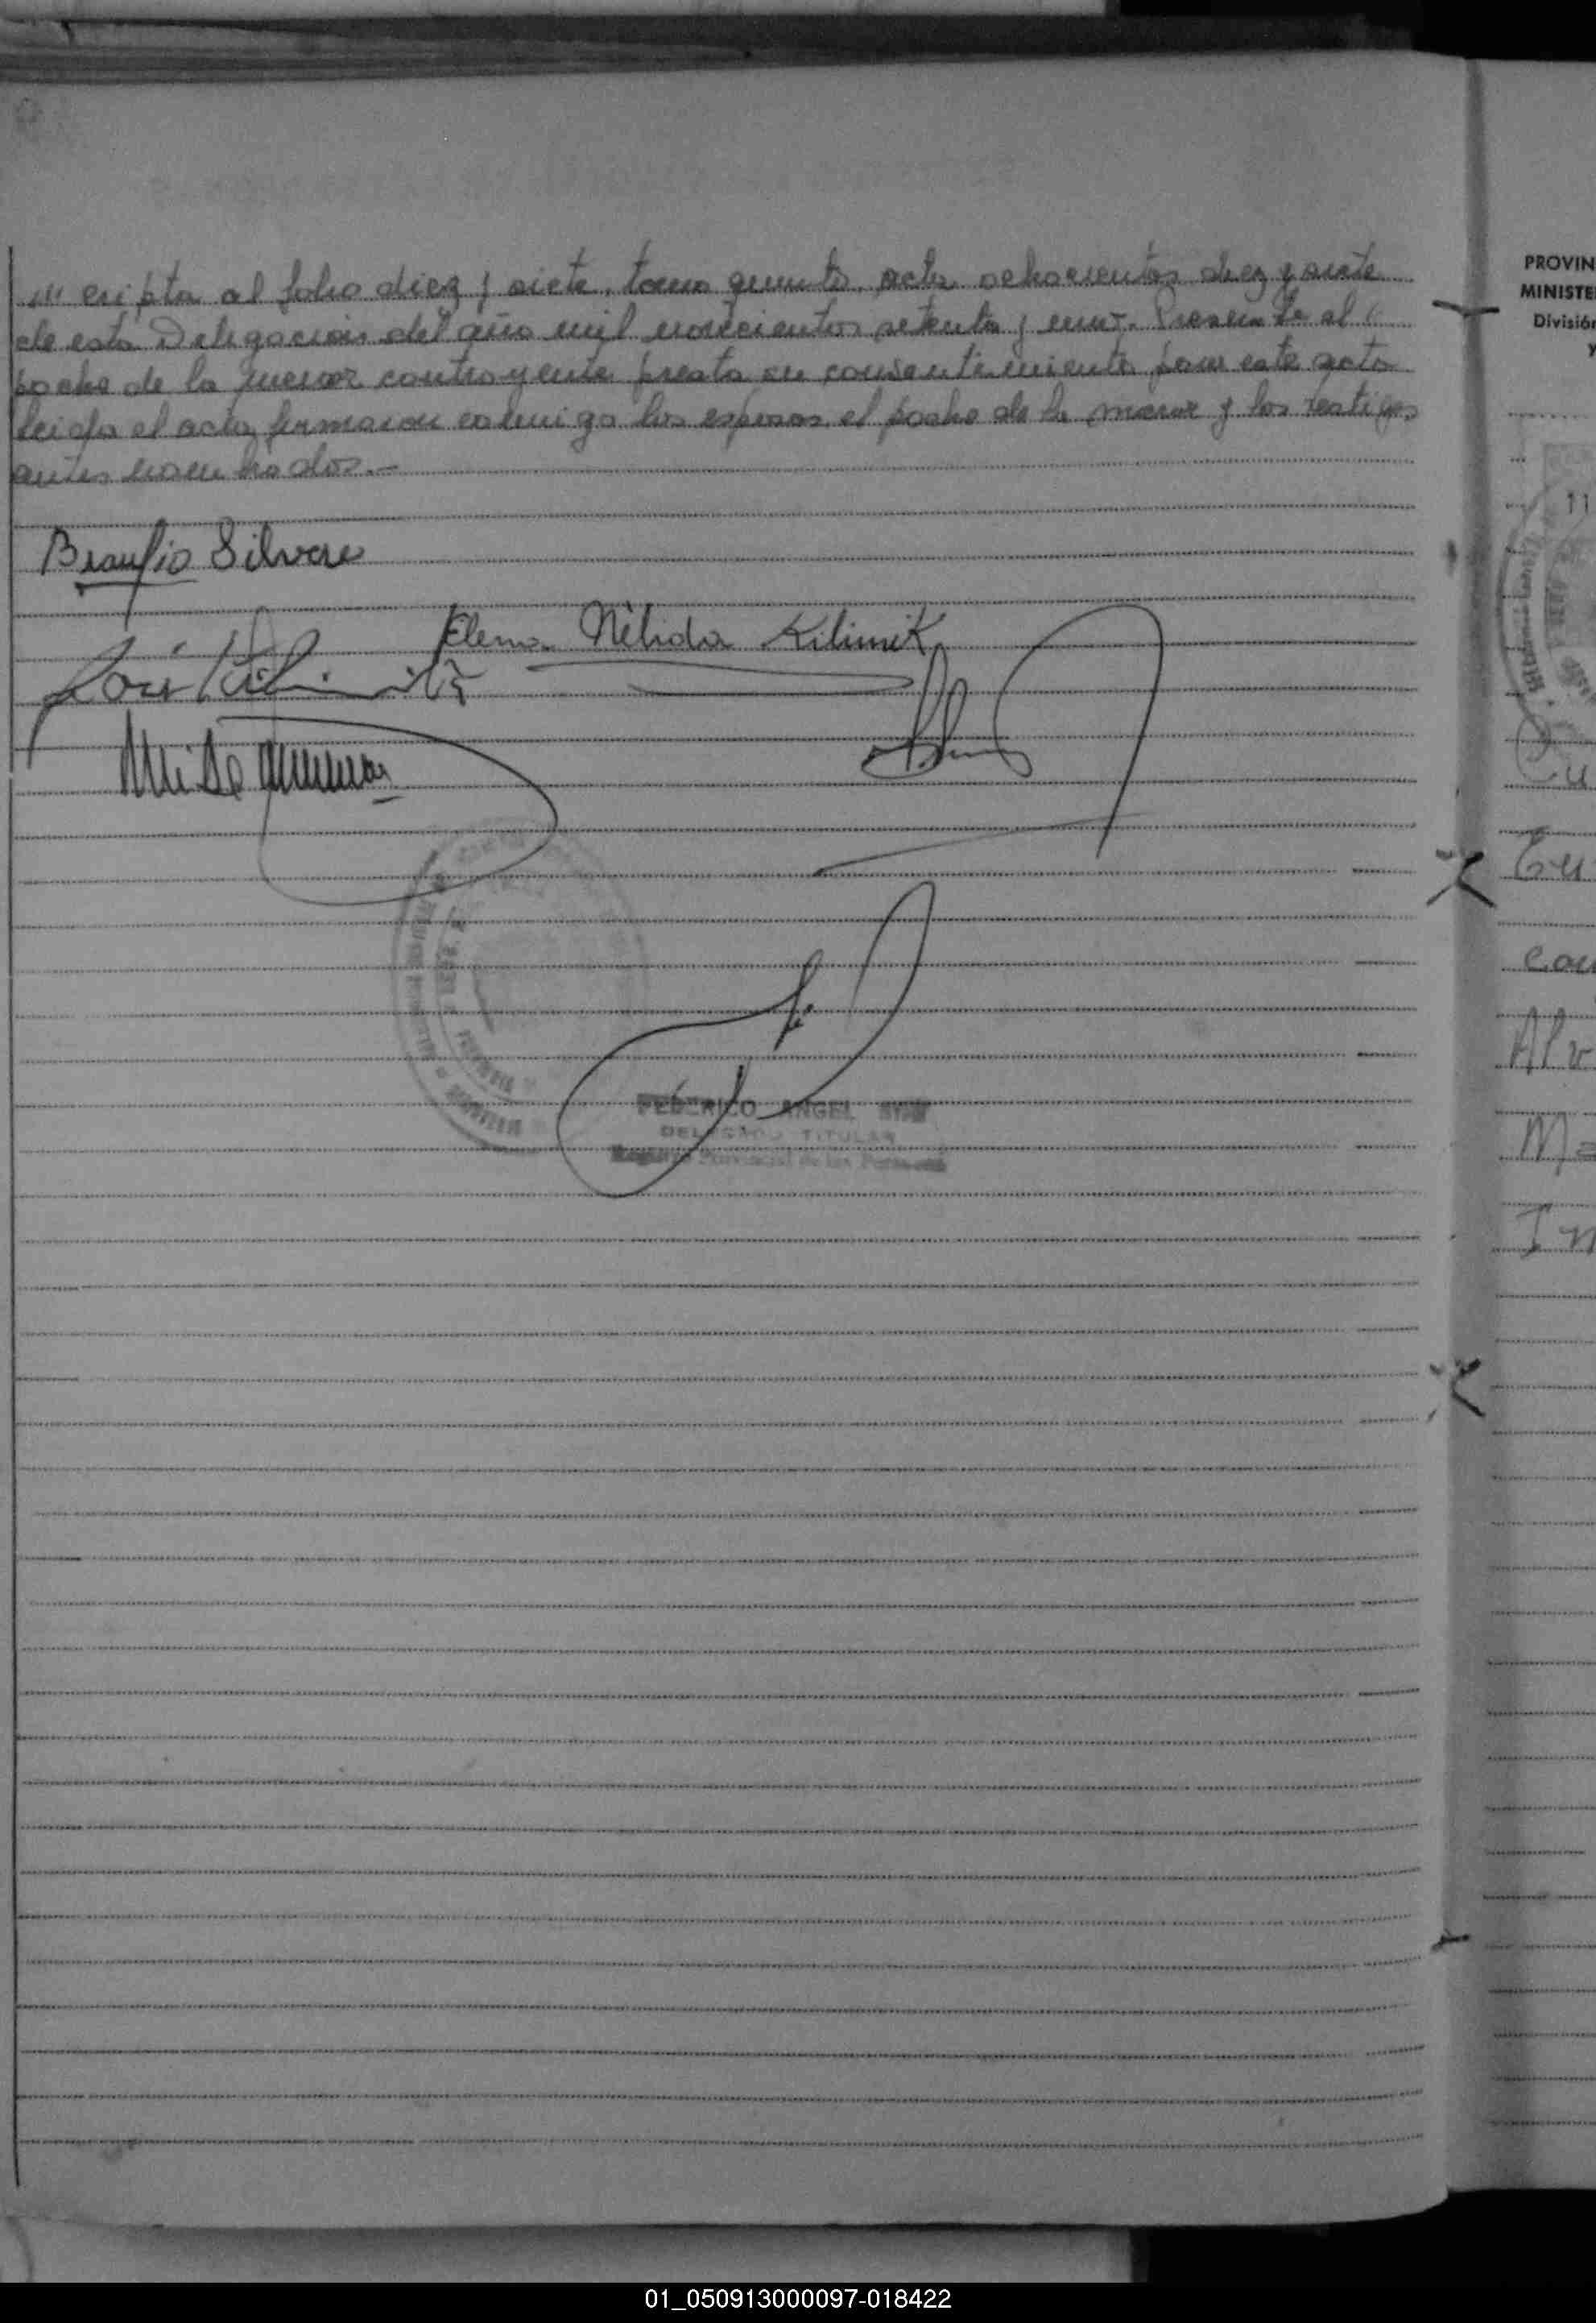 /// cripta al folio diez y siete, tomo quinto, acta ochocientos diez y siete
de esta Delegación del año mil novecientos setenta y uno.- Presente el
padre de la menor contrayente presta su consentimiento para este acto
leida el acta, firmaron conmigo los esposos, el padre de la menor y los testigos
antes nombrados.-
Braulio Silvera
Elena Nélida Kilimik
José
FEDERICO ANGEL
DELEGADO TITULAR
Registro Provincial de las Personas
PROVIN
MINISTE
División
y
11
Eu
Cou
Alv
M
In
01_050913000097-018422